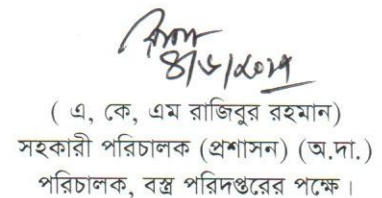 ( এ, কে, এম রাজিবুর রহমান)
সহকারী পরিচালক (প্রশাসন) (অ.দা.)
পরিচালক, বস্ত্র পরিদপ্তরের পক্ষে।